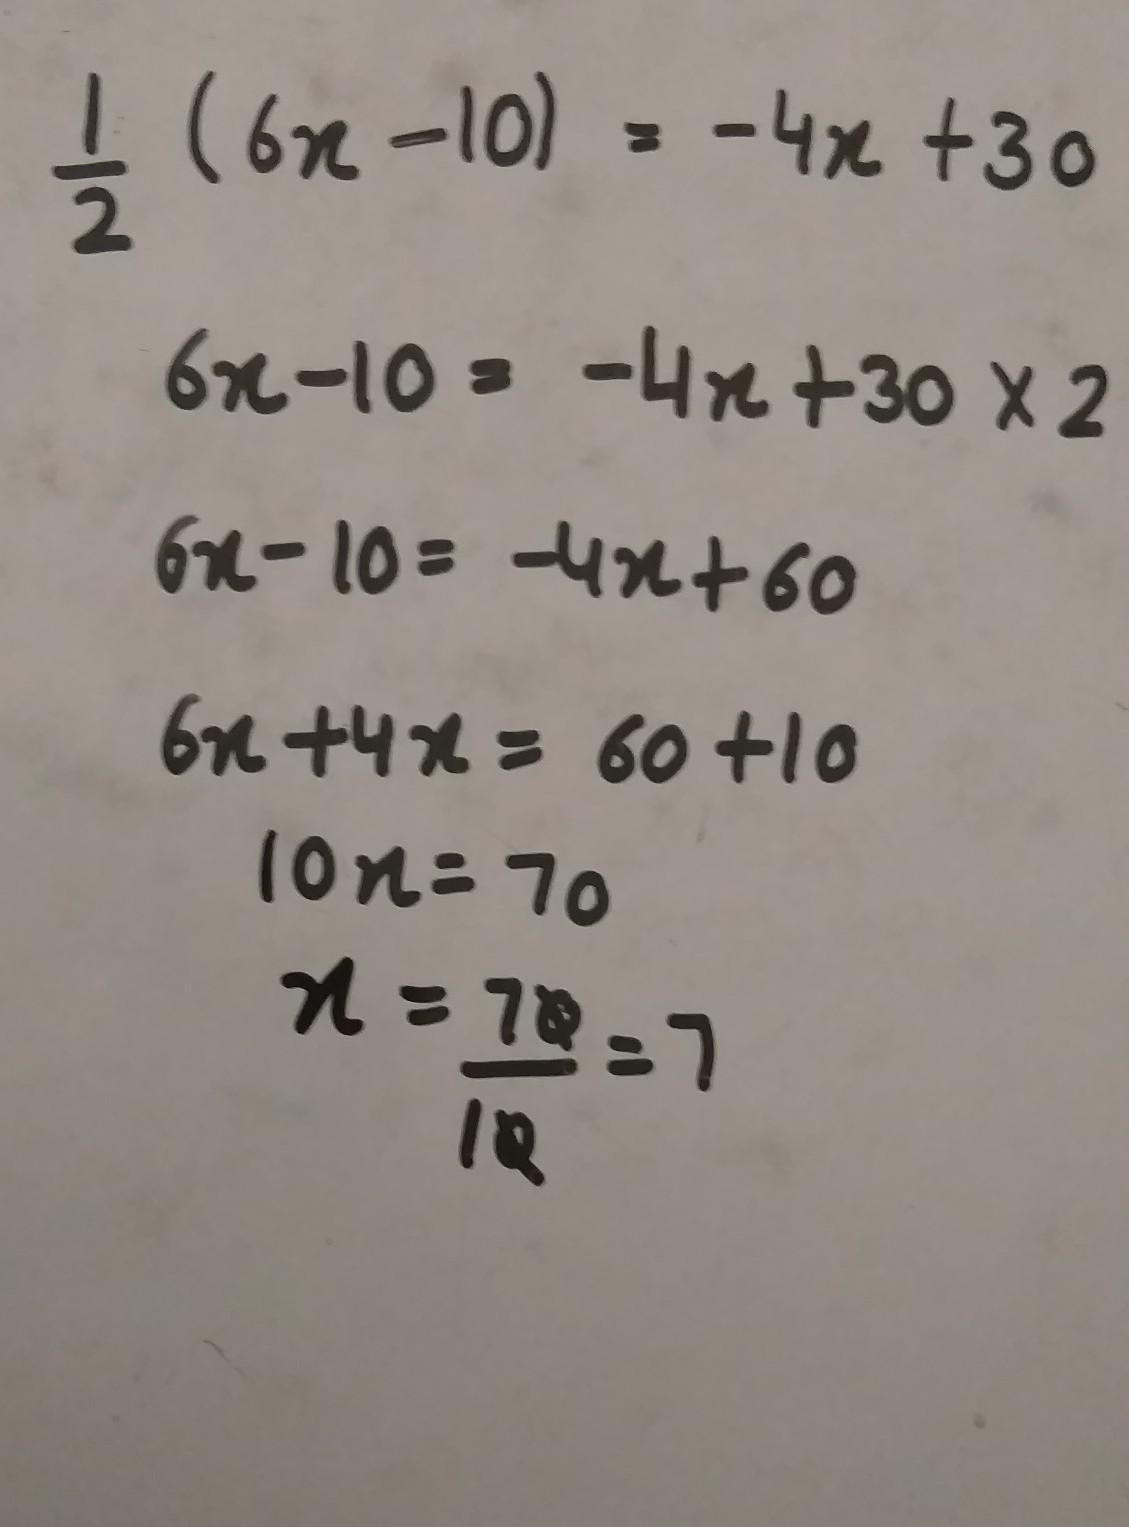 1/2 (6x - 10) = -4x + 30
6x - 10 = -4x + 30 × 2
6x - 10 = -4x + 60
6x + 4x = 60 + 10
10x = 70
x = 70/10 = 7